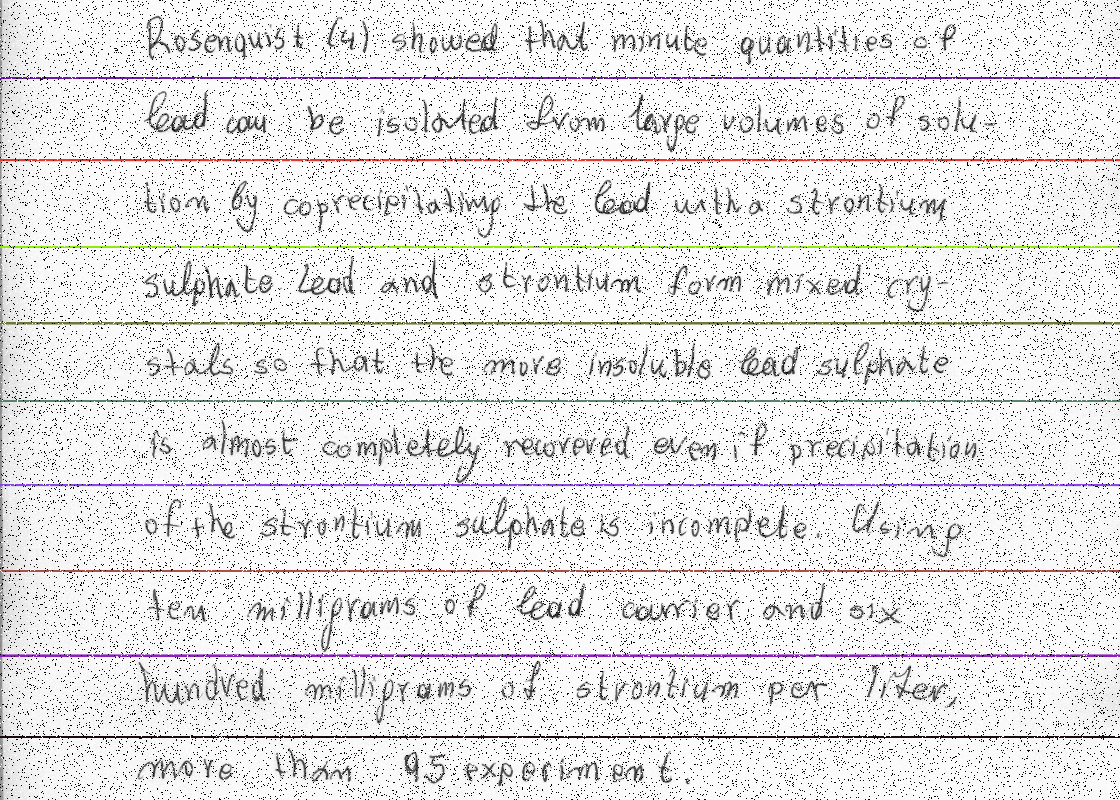 Rosenquist (4) showed that minute quantities of
lead can be isolated from large volumes of solu-
tion by coprecipitating the lead with a strontium
sulphate lead and strontium form mixed cry-
stals so that the more insoluble lead sulphate
is almost completely recovered even if precipitation
of the strontium sulphate is incomplete. Using
ten milligrams of lead carrier and six
hundred milligrams of strontium per liter,
more than 95 experiment.